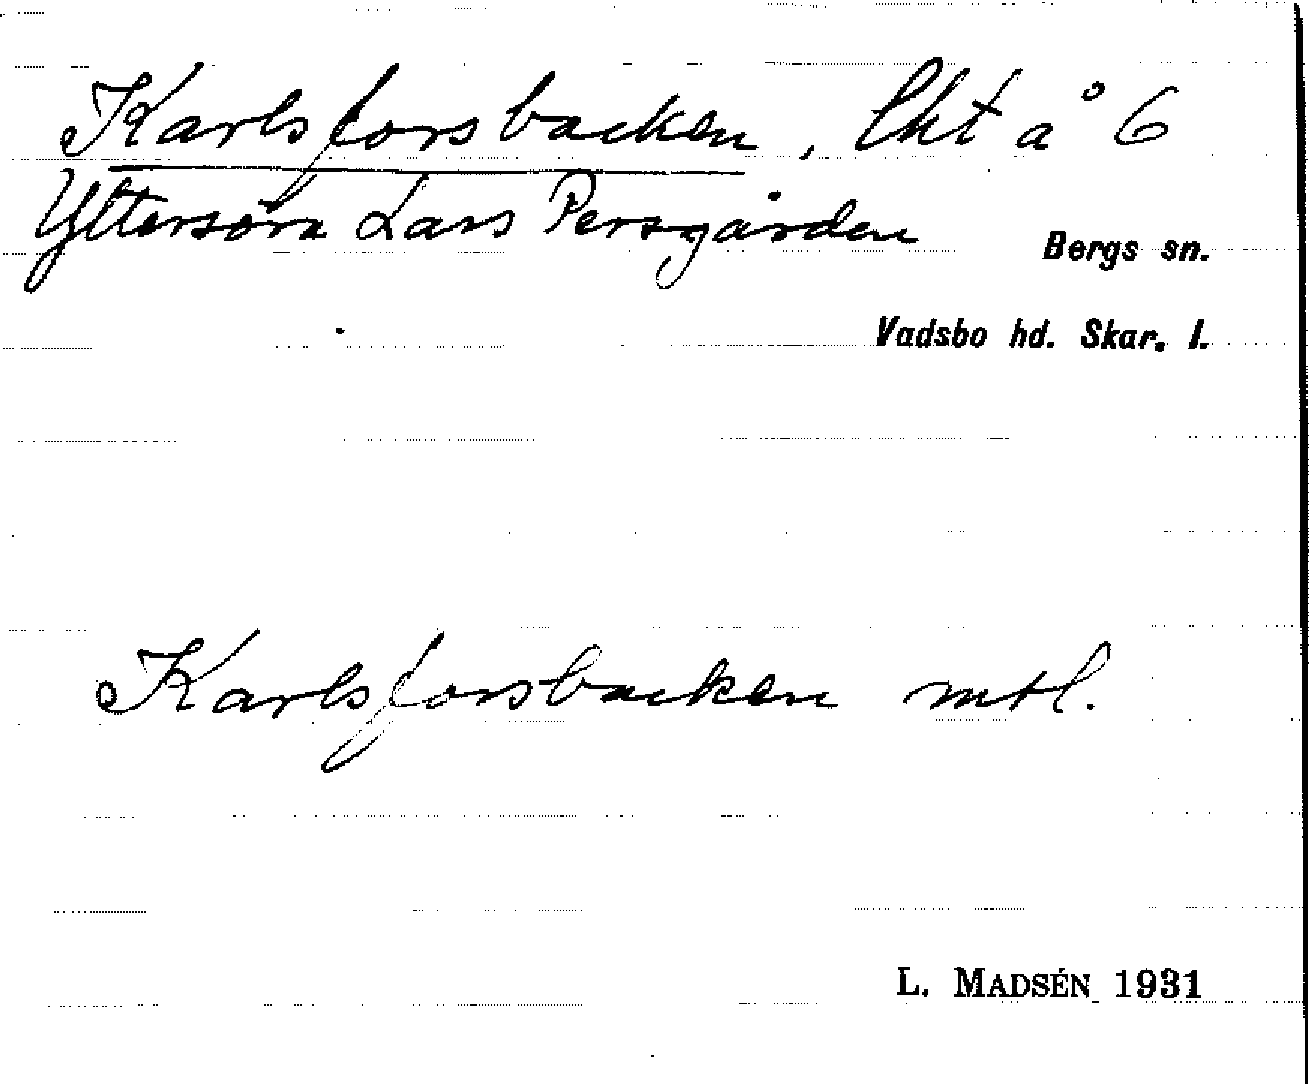 Karlsforsbacken, lht å 6
Yttersöra Lars Persgården
Bergs sn.
Vadsbo hd. Skar. l.
Karlsforsbacken mtl.
L. MADSÉN 1931